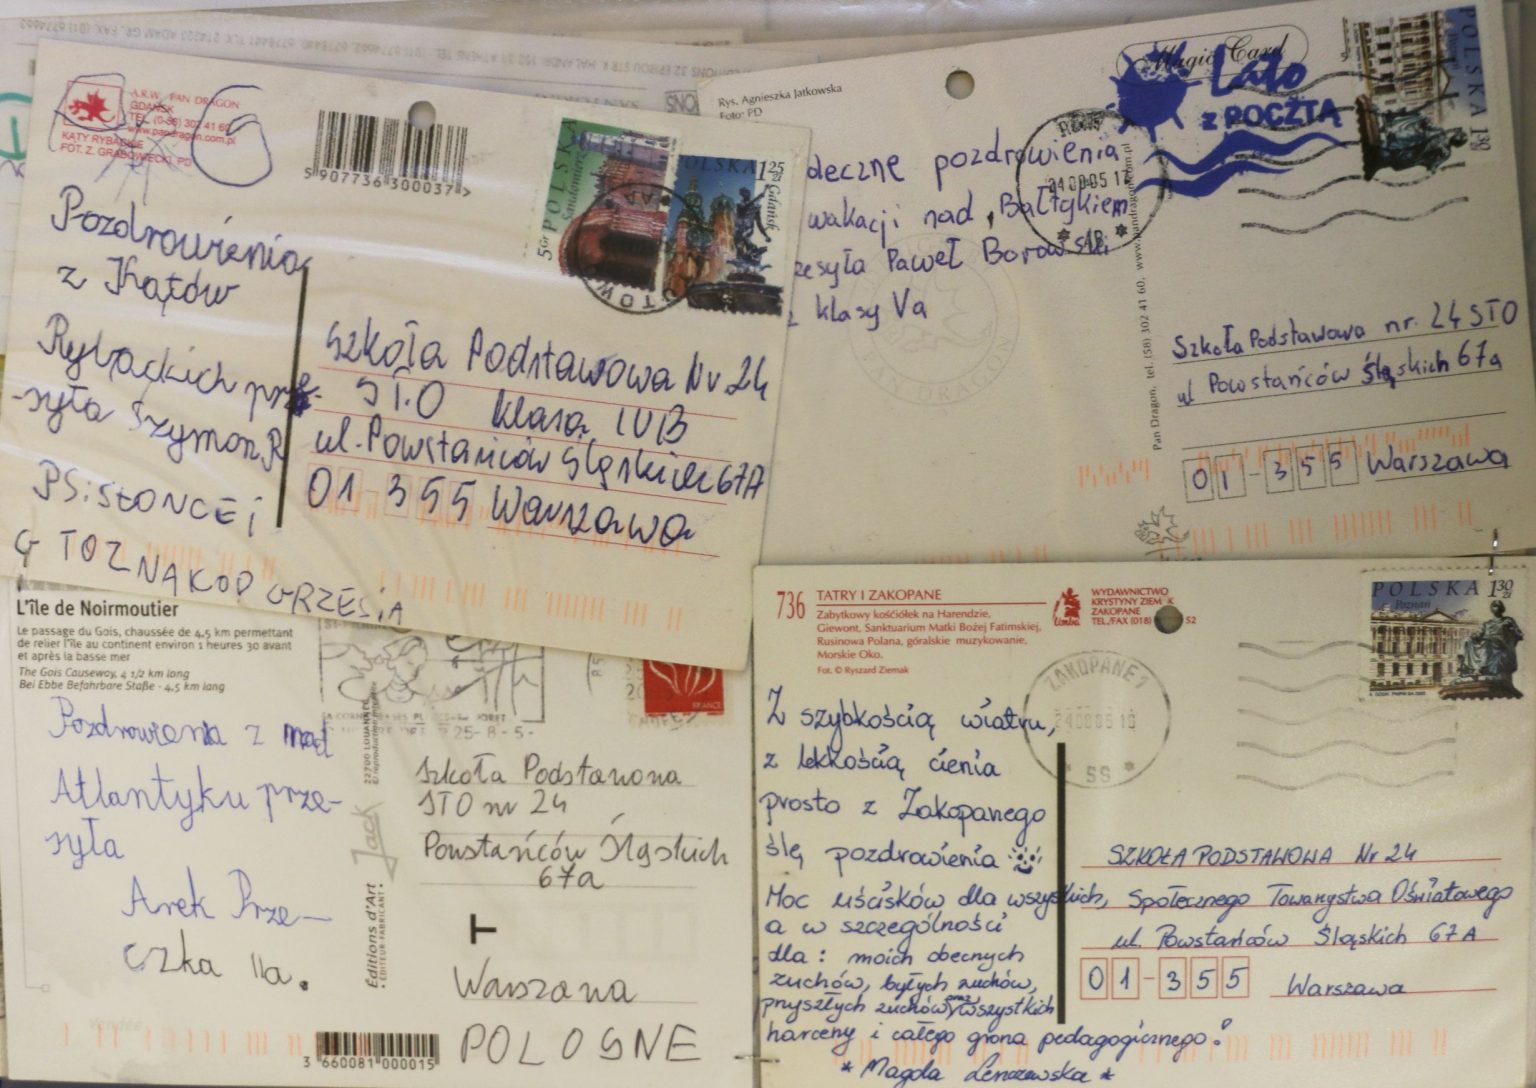 A.R.W. PAN DRAGON
GDAŃSK
TEL. (0-58) 302 41 60
www.pandragon.com.pl
KĄTY RYBACKIE
FOT. Z. GRABOWIECKI, PD
5 907736 300037 >
POLSKA
Sandomierz
5 Gr
POLSKA 1,25 zł
Gdańsk
Pozdrowienia
z Kątów
Rybackich prze-
-syła Szymon R
PS: SŁOŃCE i
G TOZ NAKOP GRZESIA
Szkoła Podstawowa Nr 24
STO klasa IVB
ul. Powstańców Śląskich 67A
01 355 Warszawa
Rys. Agnieszka Jatkowska
Foto: PD
Magic Card
Lato
z POCZTĄ
POLSKA 1,30 zł
deczne pozdrowienia
wakacji nad Bałtykiem
zesyła Paweł Borowski
z klasy Va
Pan Dragon, tel. (58) 302 41 60, www.pandragon.com.pl
Szkoła Podstawowa nr. 24 STO
ul Powstańców Śląskich 67a
01-355 Warszawa
L'île de Noirmoutier
Le passage du Gois, chaussée de 4,5 km permettant
de relier l'île au continent environ 1 heures 30 avant
et après la basse mer
The Gois Causeway, 4 1/2 km long
Bei Ebbe Befahrbare Staße - 4,5 km long
FRANCE
25-8-5-
Pozdrowienia z nad
Atlantyku prze-
syła
Arek Prze-
czka IIa.
Jack
Éditions d'Art
ÉDITEUR-FABRICANT
Szkoła Podstawowa
STO nr 24
Powstańców Śląskich
67a
T
Warszawa
POLOGNE
3 660081 000015
736 TATRY I ZAKOPANE
Zabytkowy kościółek na Harendzie,
Giewont, Sanktuarium Matki Bożej Fatimskiej,
Rusinowa Polana, góralskie muzykowanie,
Morskie Oko.
Fot. © Ryszard Ziemak
WYDAWNICTWO
KRYSTYNY ZIEM K
ZAKOPANE
TEL./FAX (018) 52
POLSKA 1,30 zł
Poznań
ZAKOPANE 1
Z szybkością wiatru,
z lekkością cienia
prosto z Zakopanego
ślę pozdrowienia
Moc uścisków dla wszystkich,
a w szczególności
dla: moich obecnych
zuchów, byłych zuchów,
przyszłych zuchów oraz wszystkich
harcerzy i całego grona pedagogicznego!
* Magda Lenczewska *
SZKOŁA PODSTAWOWA Nr 24
Społecznego Towarzystwa Oświatowego
ul. Powstańców Śląskich 67A
01-355 Warszawa